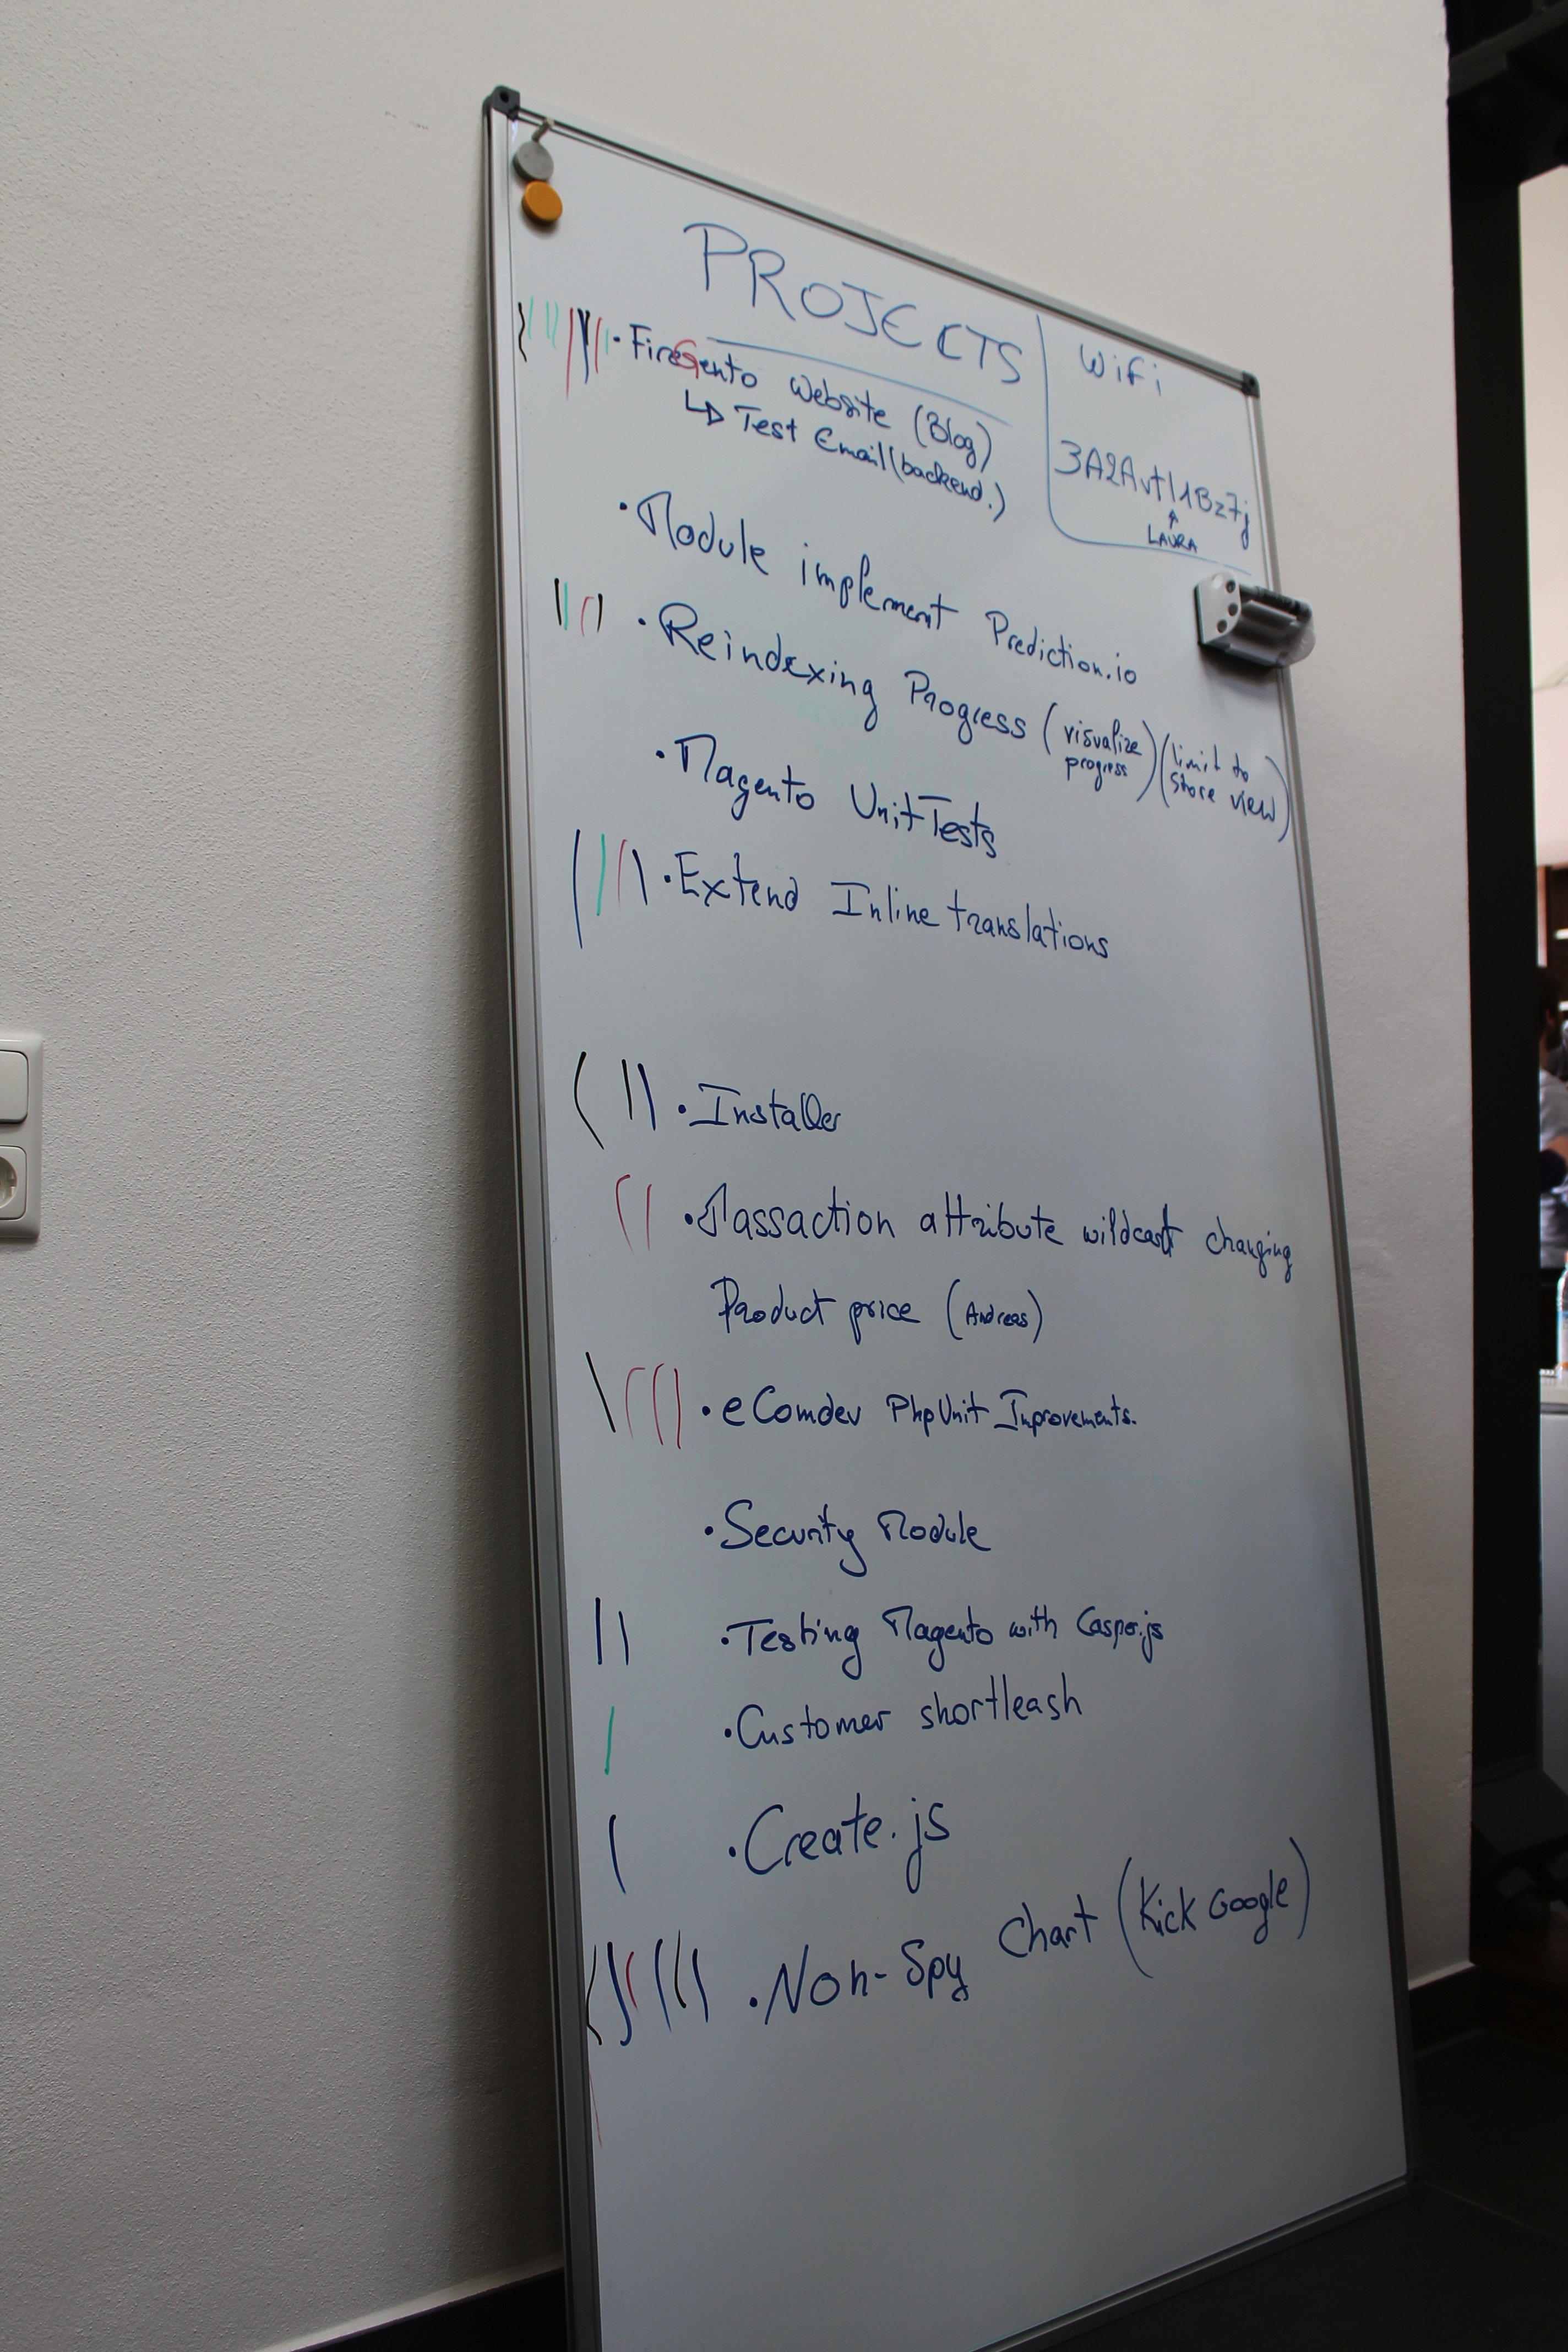 PROJECTS
• FireGento Website (Blog)
↳ Test Email (backend.)
• Module implement Prediction.io
• Reindexing Progress (visualize progress) (limit to store view)
• Magento UnitTests
• Extend Inline translations
• Installer
• Massaction attribute wildcard changing
Product price (Andreas)
• eComdev PhpUnit Inprovements.
• Security Module
• Testing Magento with Casper.js
• Customer shortleash
• Create.js
• Non-Spy Chart (Kick Google)
WiFi
3A2Avtl1Bz7j
↑
LAURA